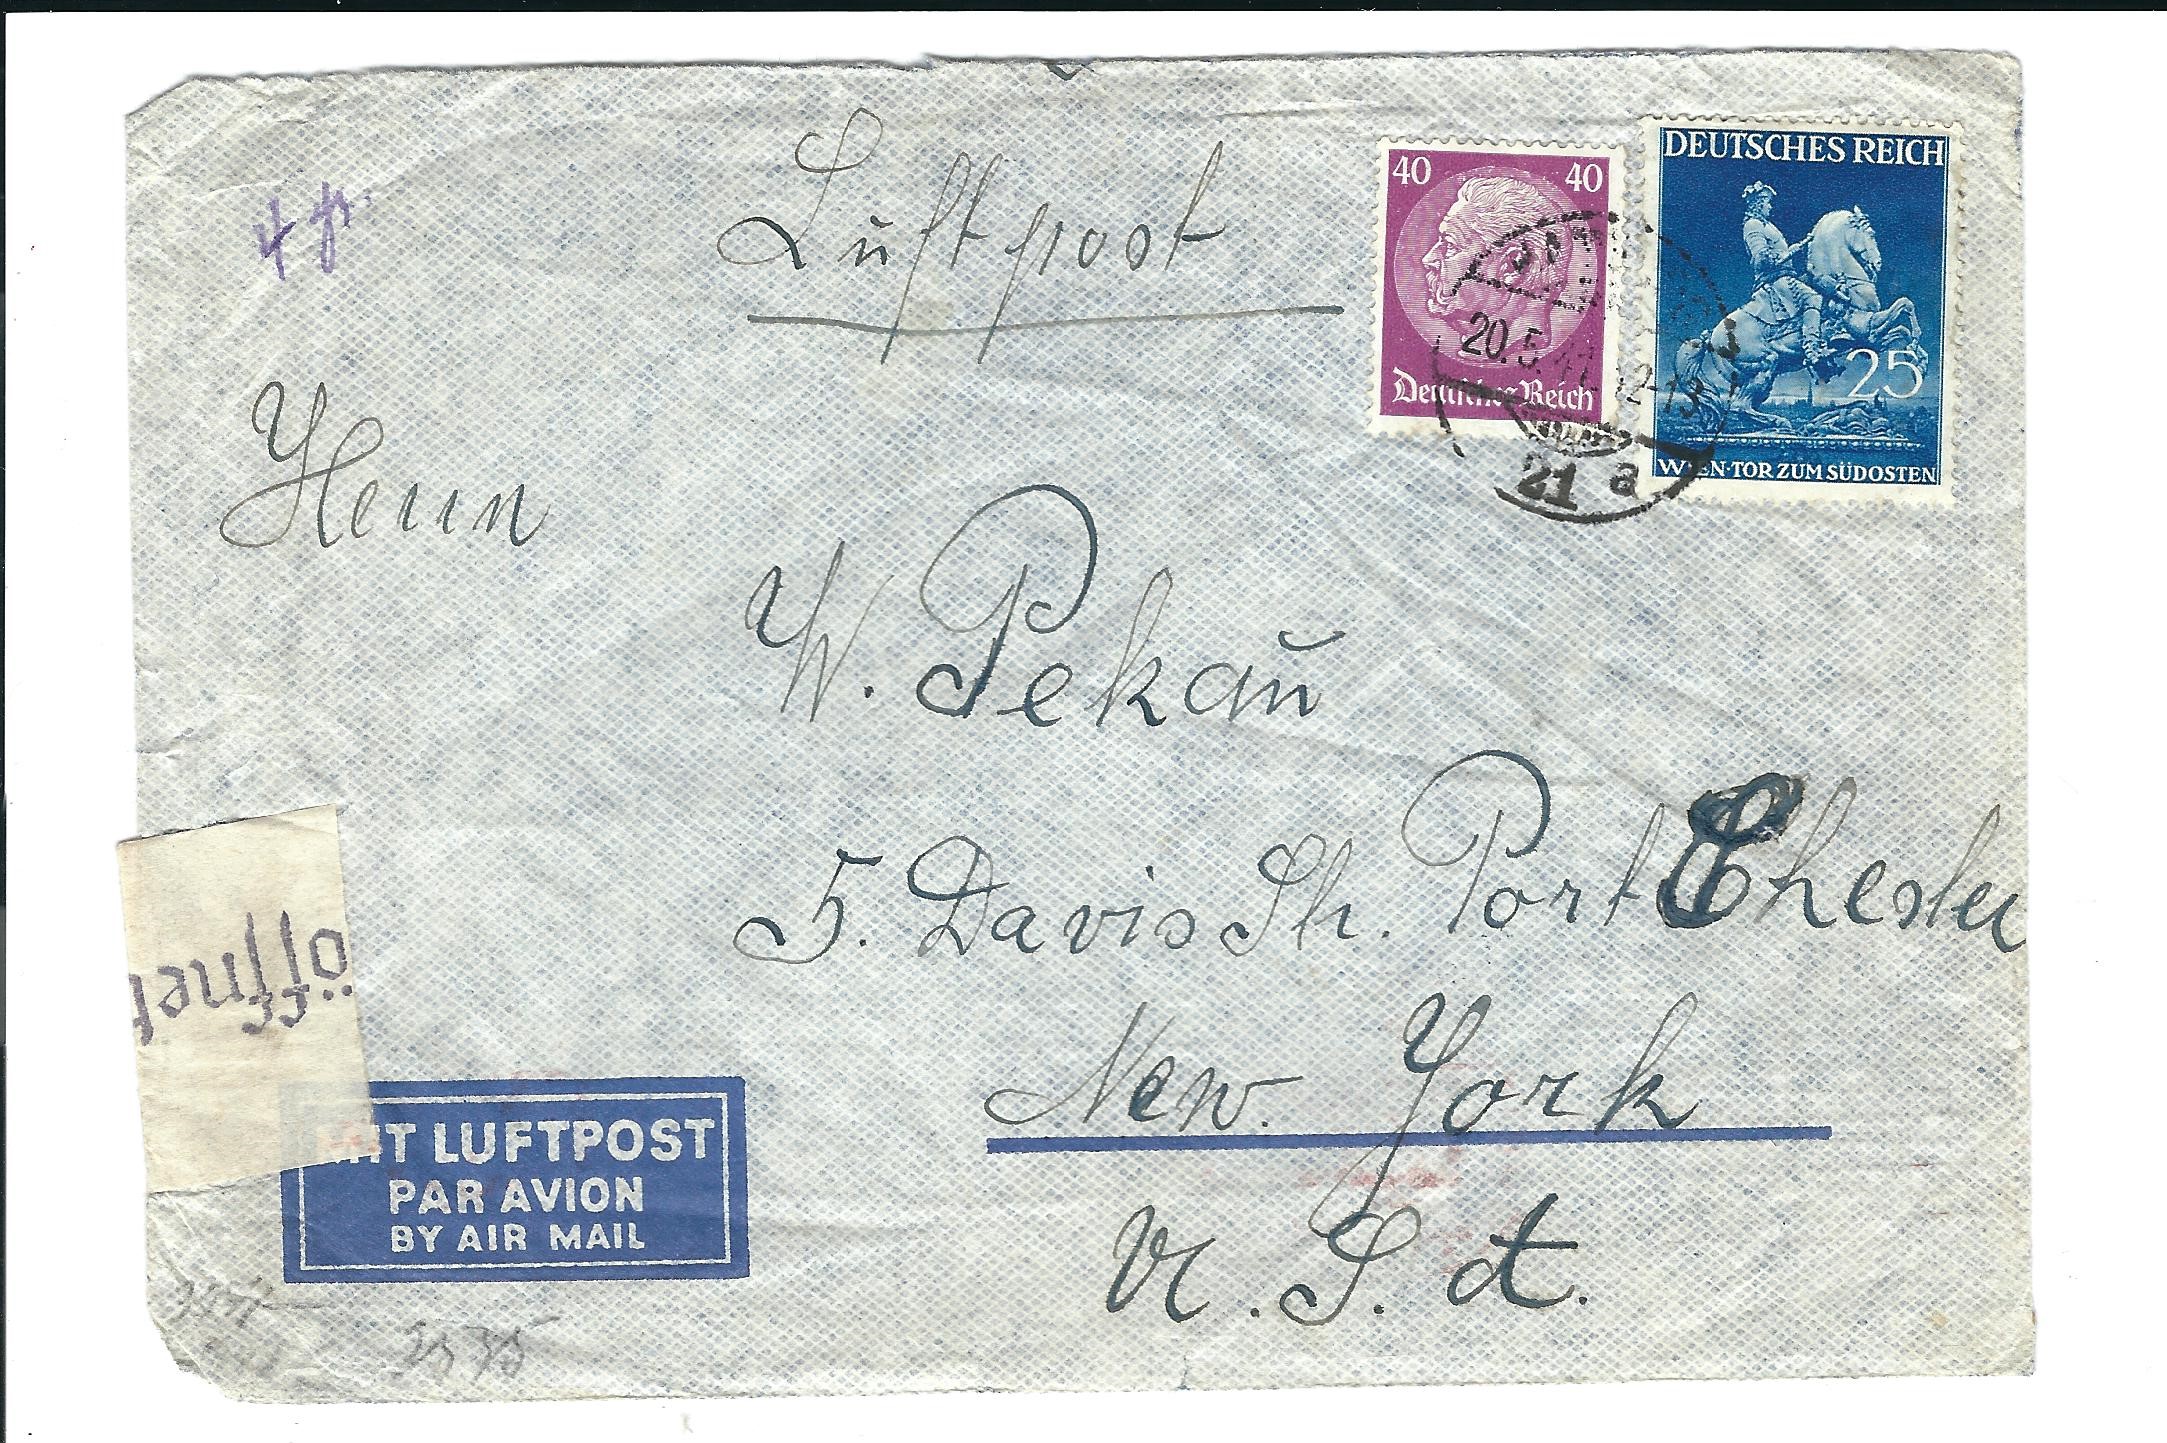 4 gr.
Luftpost
40 40
Deutsches Reich
DEUTSCHES REICH
25
WIEN·TOR ZUM SÜDOSTEN
20.5.41. 12-13
21 a
Herrn
W. Pekaŭ
5. Davis Str. Port Chester
New. York
U. S. A.
öffnet
MIT LUFTPOST
PAR AVION
BY AIR MAIL